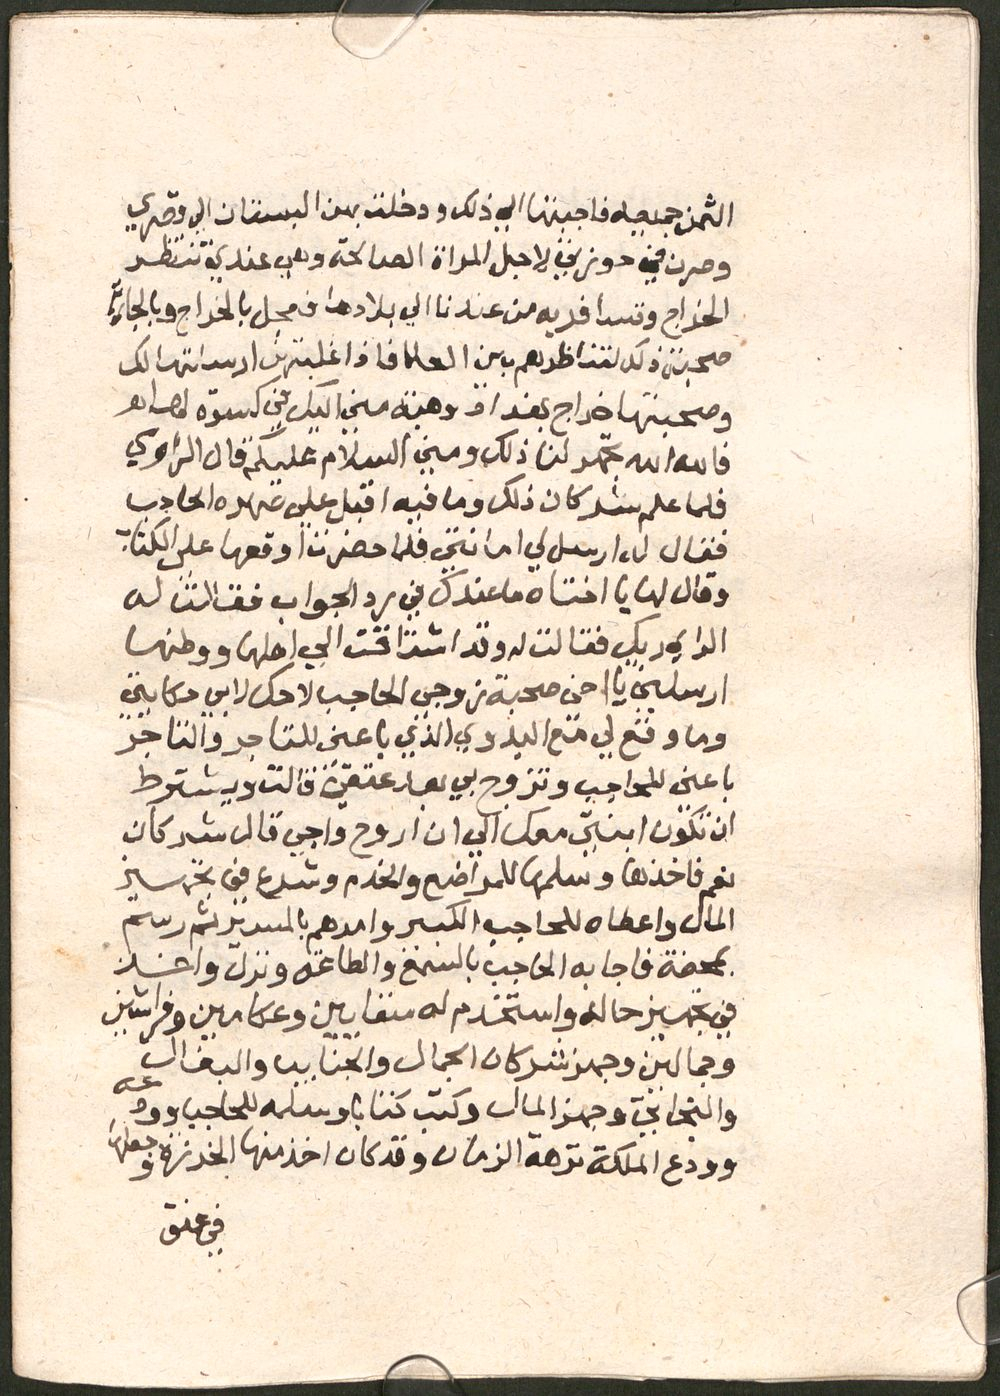 الثمن جميعه فاجبتها الي ذلك ودخلت بهن البستان الي وقصري
وصرن في حوزتي لاجل المراة الصالحة وهي عندي تنتظر
الخراج وتسافر به من عندنا الي بلادها فعجل بالخراج وبالجارية
صحبة ذلك لتناظرهم بين العلما فاذا غلبتهن ارسلتها لك
وصحبتها خراج بغداد وهبته مني اليك في كسوة
فالله الله تمم لنا ذلك ومني السلام عليكم قال الراوي
فلما علم شركان ذلك وما فيه اقبل علي صهره الحاجب
فقال له ارسل لي امانتي فلما حضرت اوقعها علي الكتاب
وقال لها يا اختاه ما عندك في رد الجواب فقالت له
الراي رايك فقالت له وقد اشتاقت الي اهلها ووطنها
ارسليني يا اخي صحبة زوجي الحاجب لاحكي لابي حكايتي
وما وقع لي مع البدوي الذي باعني للتاجر والتاجر
باعني للحاجب وتزوج بي بعد عتقي قالت ويشترط
ان تكون ابنتي معك الي ان اروح واجي قال شركان
نعم فاخذها وسلمها للمراضع والخدم وشرع في تجهيز
المال واعطاه للحاجب الكبير وامرهم بالمسير ثم رسم
بمحفة فاجابه الحاجب بالسمع والطاعة ونزل واخذ
في تجهيز حاله واستخدم له سقايين وعكامين وفراشين
وجمالين وجهز شركان الجمال والجنايب والبغال
والبخاتي وجهز المال وكتب كتابا وسلمه للحاجب وودعه
وودع الملكة نزهة الزمان وقد كان اخذ منها الخرزة وجعلها
في عنق